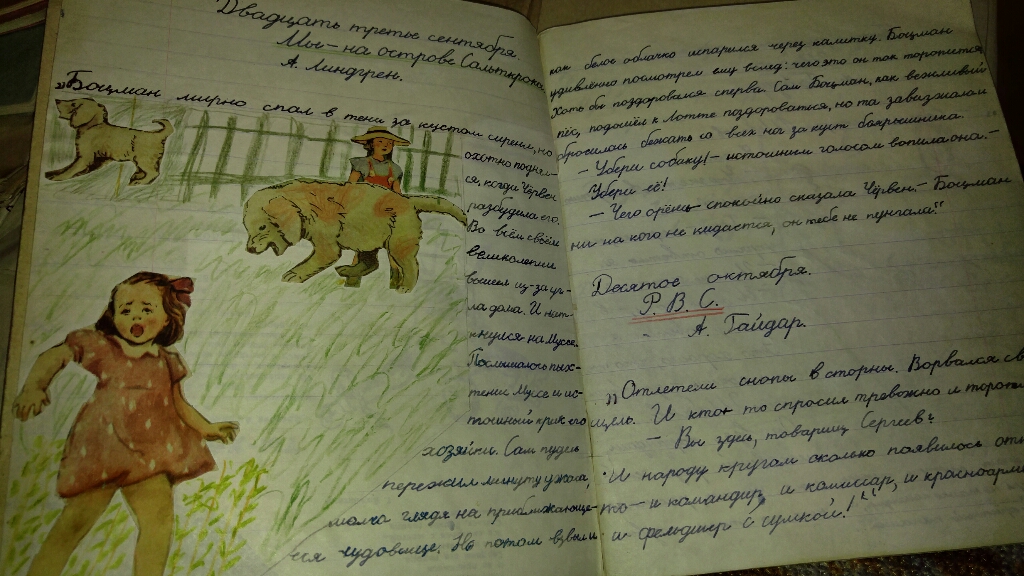 Двадцать третье сентября.
Мы - на острове Сальткрока
А. Линдгрен.
„Боцман мирно спал в тени за кустом сирени, но
охотно поднял-
ся, когда Чёрвен
разбудила его.
Во всём своём
великолепии
вышел из-за уг-
ла дома. И нат-
кнулся на Муссе.
Послышалось пых-
тение Муссе и ис-
тошный крик его
хозяйки. Сам пудель
пережил минуту ужаса,
молча глядя на приближающе-
еся чудовище. Но потом взвыл и
как белое облачко испарился через калитку. Боцман
удивлённо посмотрел ему вслед: чего это он так торопится
Хоть бы поздоровался сперва. Сам Боцман, как вежливый
пёс, подошёл к Лотте поздороваться, но та завизжала и
бросилась бежать со всех ног за куст боярышника.
- Убери собаку! - истошным голосом вопила она. -
Убери её!
- Чего орёшь - спокойно сказала Чёрвен, - Боцман
ни на кого не кидается, он тебе не пунгала!"
Десятое октября.
Р. В. С.
А. Гайдар.
„Отлетели снопы в стороны. Ворвался св
щель. И кто-то спросил тревожно и тороп
- Вы здесь, товарищ Сергеев?
И народу кругом сколько появилось отк
то - и командир, и комиссар, и красноарм
и фельдшер с сумкой!"